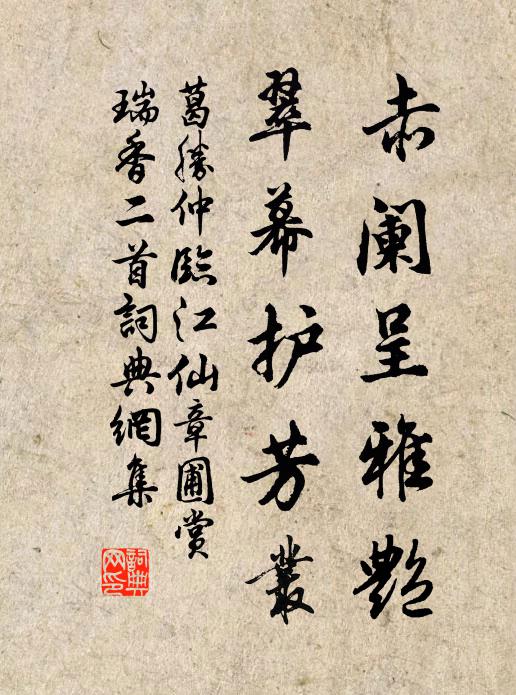 赤阑呈雅艷
翠幕护芳叢
葛勝仲臨江仙章圃賞
瑞香二首詞典網集
詞典網印